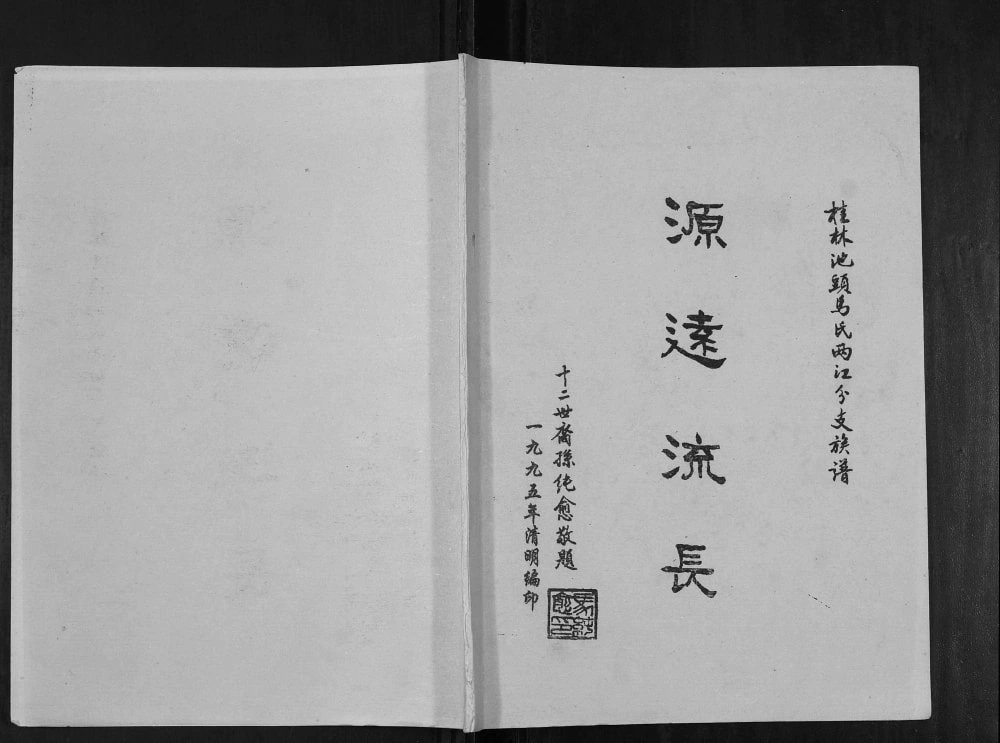 桂林池頭馬氏两江分支族谱
源遠流長
十二世裔孫纯愈敬題
一九九五年清明编印
馬純愈印